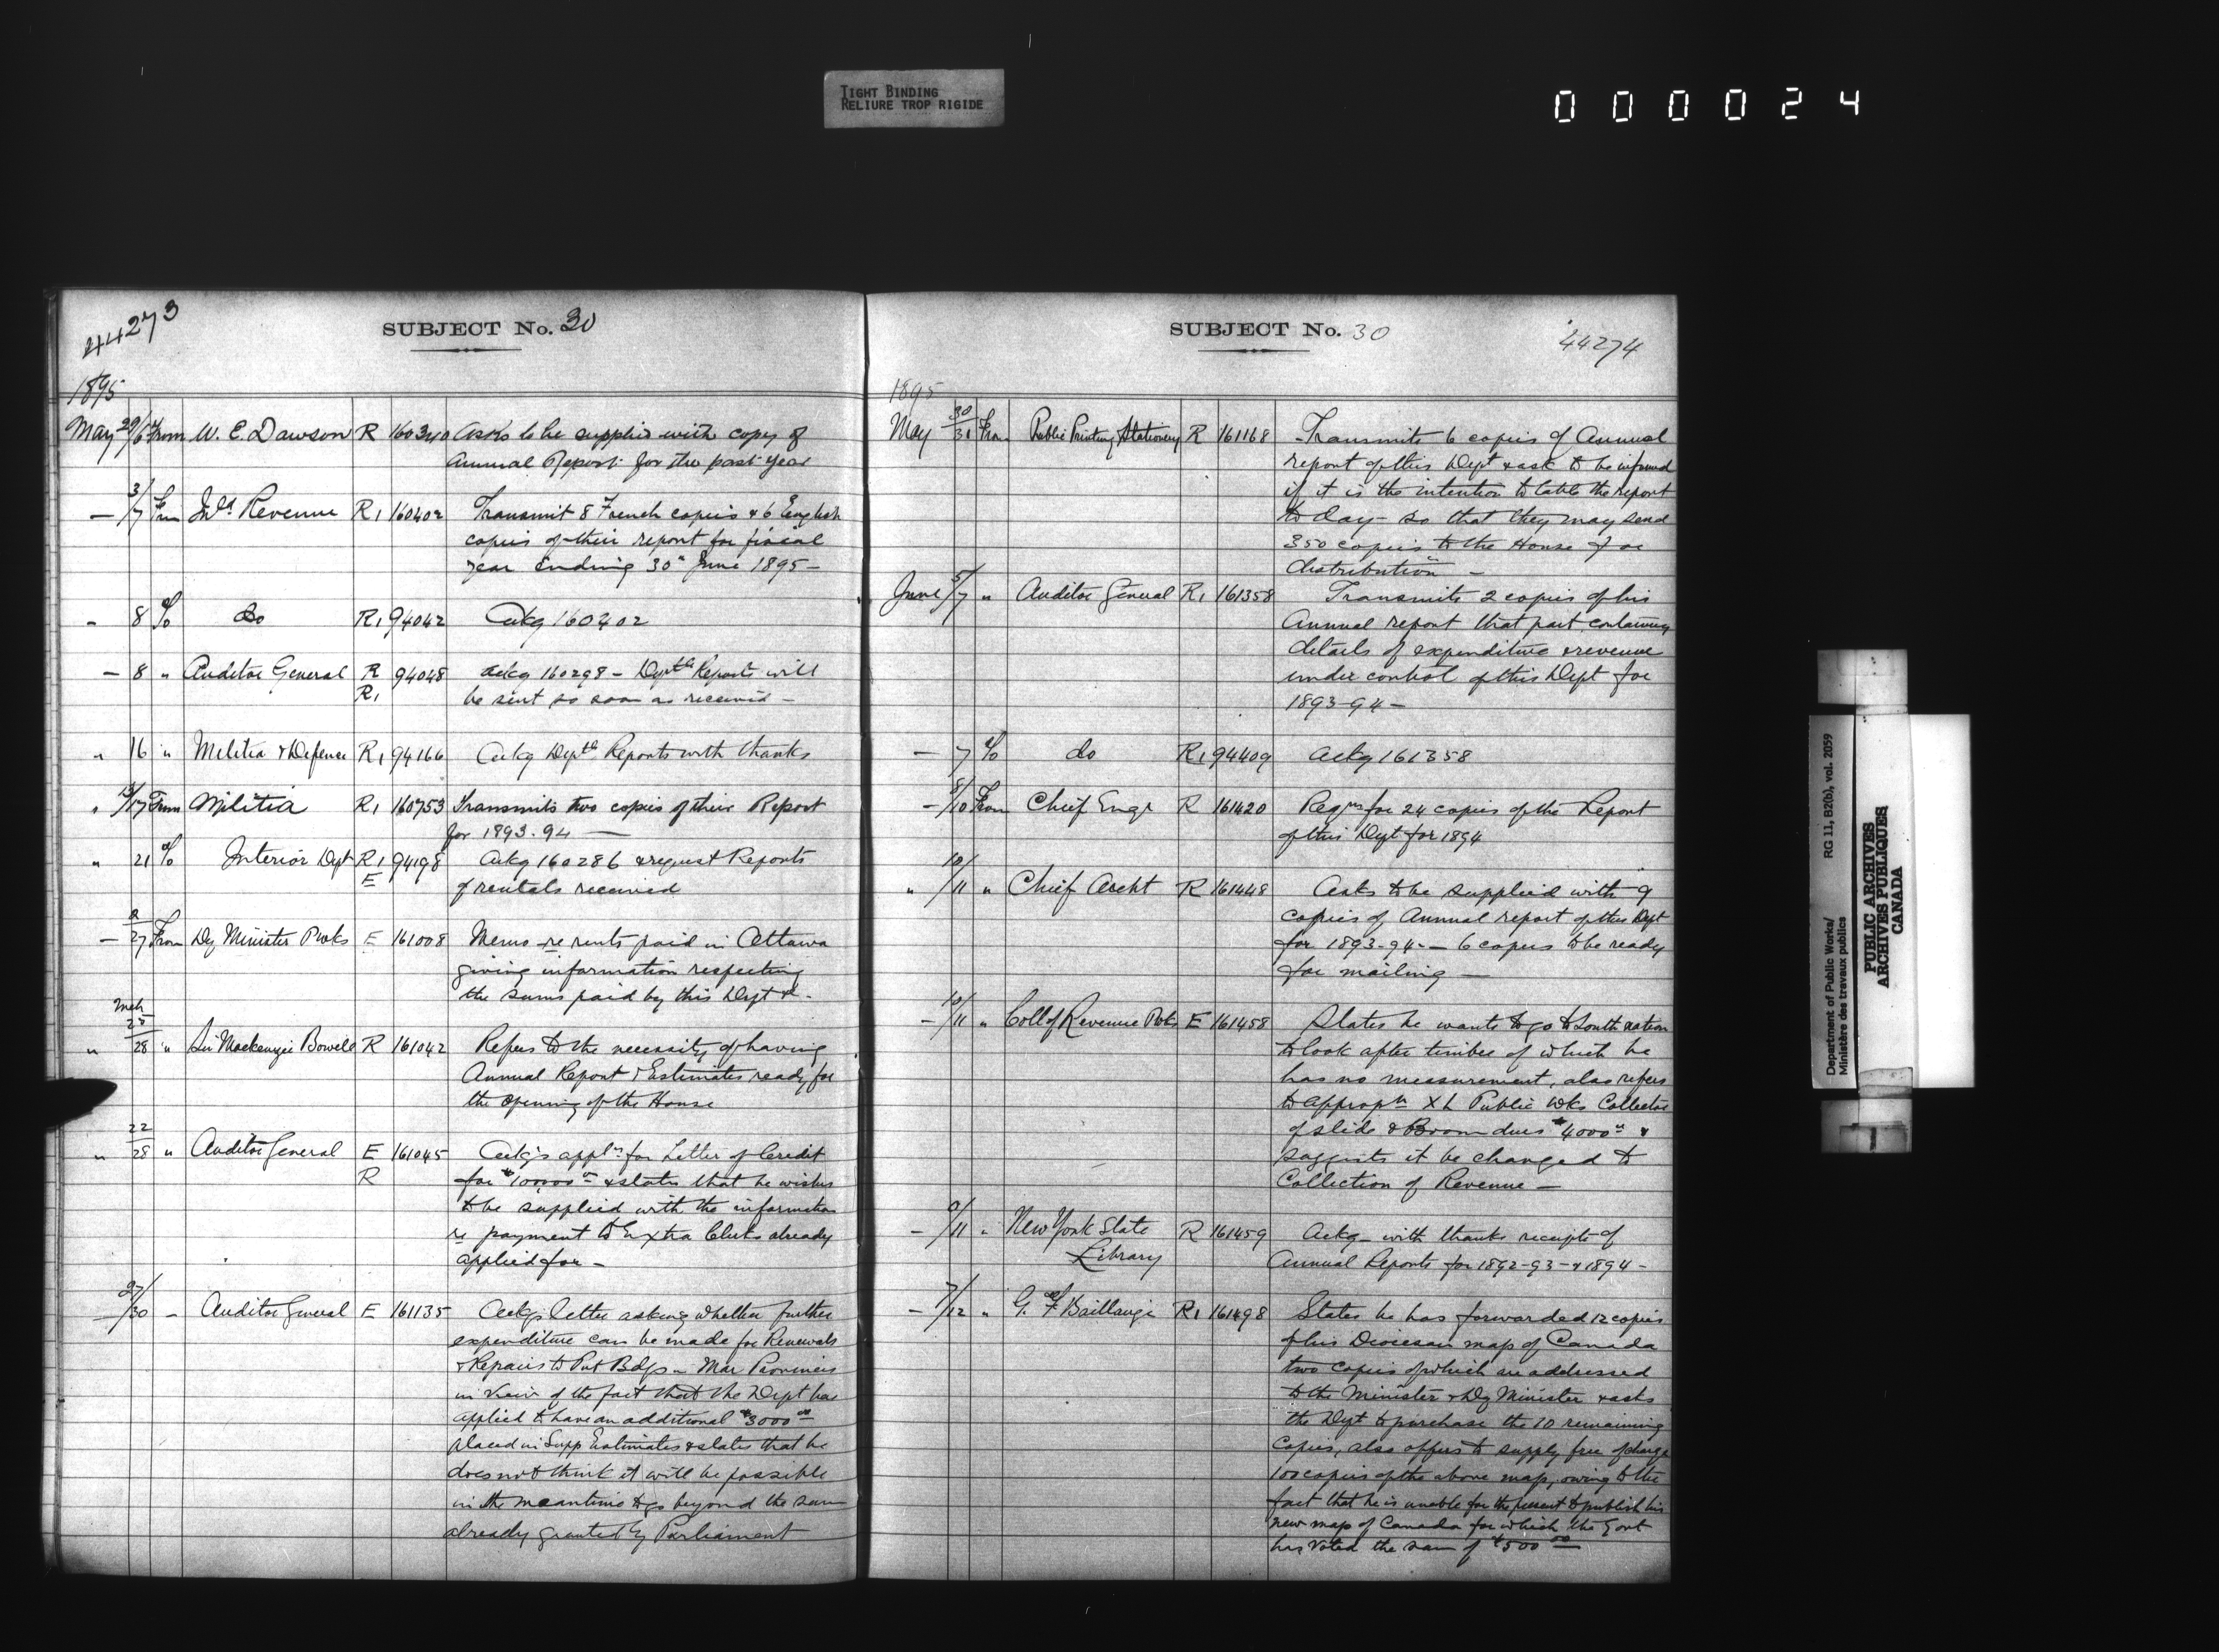 TIGHT BINDING
RELIURE TROP RIGIDE
0 0 0 0 0 2 4
44273
SUBJECT No. 30
1895
May 29/6 From W. E. Dawson R 160340 Asks to be supplied with copy of
Annual Report for the past year
— 3/7 From Inld Revenue R1 160402 Transmit 8 French copies & 6 English
copies of their report for fiscal
year ending 30" June 1895 —
" 8 % Do R1 94042 Ackg 160402
— 8 " Auditor General R 94048 Ackg 160298 — Deptl Reports will
R1 be sent so soon as received —
" 16 " Militia & Defence R1 94166 Ackg Deptl Reports with thanks
" /17 From Militia R1 160753 Transmits two copies of their Report
for 1893-94 —
" 21 % Interior Dept R1 94198 Ackg 160286 & request Reports
E of rentals received
— 2/27 From Dy Minister P Wks E 161008 Memo re rents paid in Ottawa
giving information respecting
the sums paid by this Dept &.
Mch
" 28/28 " Sir Mackenzie Bowell R 161042 Refers to the necessity of having
Annual Report & Estimates ready for
the opening of the House
" 22/28 " Auditor General E 161045 Ackg's appln for Letter of Credit
R for $10000 00 & states that he wishes
to be supplied with the information
re payment to Extra Clerks already
applied for —
27/30 — Auditor General E 161135 Ackgs letter asking whether further
expenditure can be made for Renewals
& Repairs to Pub Bdgs — Mar Provinces
in view of the fact that the Dept has
applied to have an additional $3000 00
placed in Supp Estimates & states that he
does not think it will be possible
in the meantime to go beyond the sum
already granted by Parliament
SUBJECT No. 30
44274
1895
May 30/31 From Public Printing Stationery R 161168 Transmits 6 copies of Annual
report of this Dept & ask to be informed
if it is the intention to table the report
to day — so that they may send
350 copies to the House for
distribution —
June 5/7 " Auditor General R1 161358 Transmits 2 copies of his
Annual report that part containing
details of expenditure & revenue
under control of this Dept for
1893-94 —
— 7 % do R1 94409 Ackg 161358
— 8/10 From Chief Engr R 161420 Reqn for 24 copies of the Report
of this Dept for 1894
" 10/11 " Chief Archt R 161448 Asks to be supplied with 9
copies of Annual report of this Dept
for 1893-94 — 6 copies to be ready
for mailing —
— 10/11 " Coll of Revenue P Wks E 161458 States he wants to go to South nation
to look after timber of which he
has no measurement, also refers
to appropn Public Wks Collector
of slide & Boom dues $4000 00 &
suggests it be changed to
Collection of Revenue —
— /11 " New York State R 161459 Ackg — with thanks receipts of
Library Annual Reports for 1892-93 — & 1894 —
— 7/12 " G. F Baillairgé R1 161498 States he has forwarded 12 copies
of his Diocesan map of Canada
two copies of which are addressed
to the Minister & Dy Minister & asks
the Dept to purchase the 10 remaining
copies, also offers to supply free of charge
100 copies of the above map, owing to the
fact that he is unable for the present to publish his
new map of Canada for which the Govt
has voted the sum of $500 00
Department of Public Works/ RG 11, B2(b), vol. 2059
Ministère des travaux publics
PUBLIC ARCHIVES
ARCHIVES PUBLIQUES
CANADA